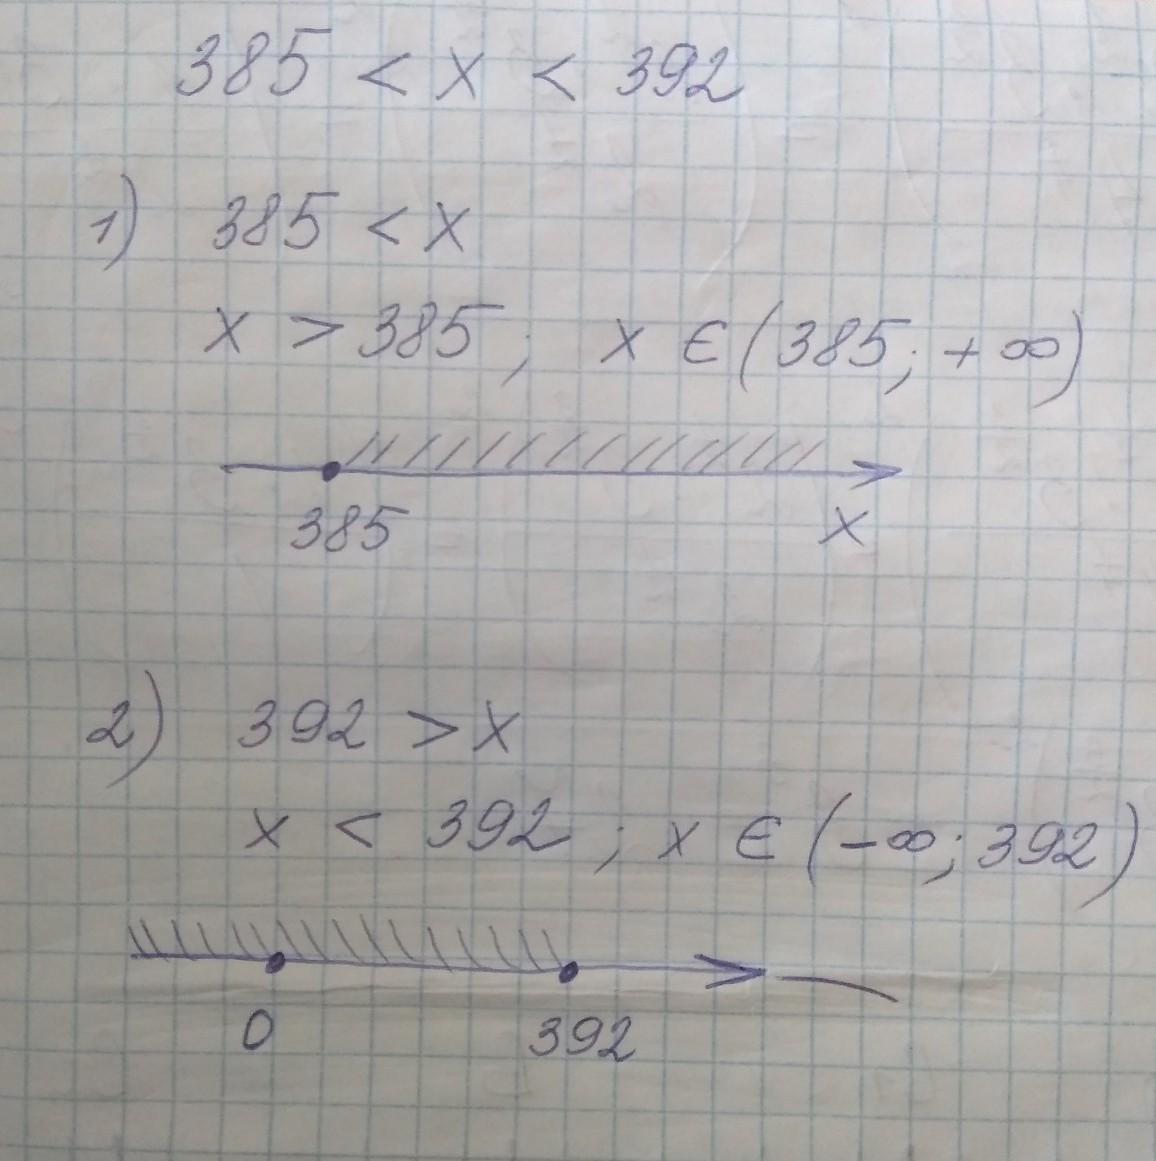 385 < x < 392
1) 385 < x
x > 385; x ∈ (385; +∞)
385 x
2) 392 > x
x < 392; x ∈ (-∞; 392)
0 392